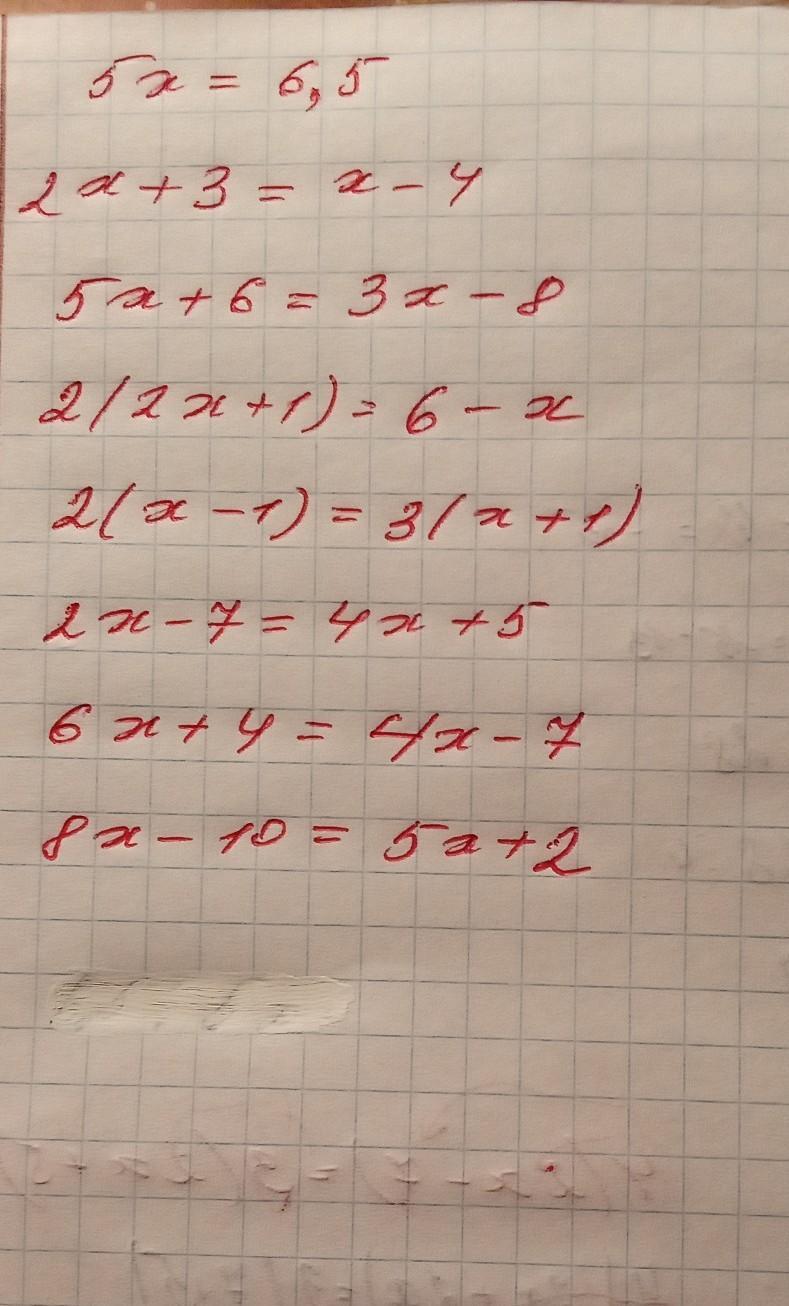 5x = 6,5
2x + 3 = x - 4
5x + 6 = 3x - 8
2(2x + 1) = 6 - x
2(x - 1) = 3(x + 1)
2x - 7 = 4x + 5
6x + 4 = 4x - 7
8x - 10 = 5x + 2